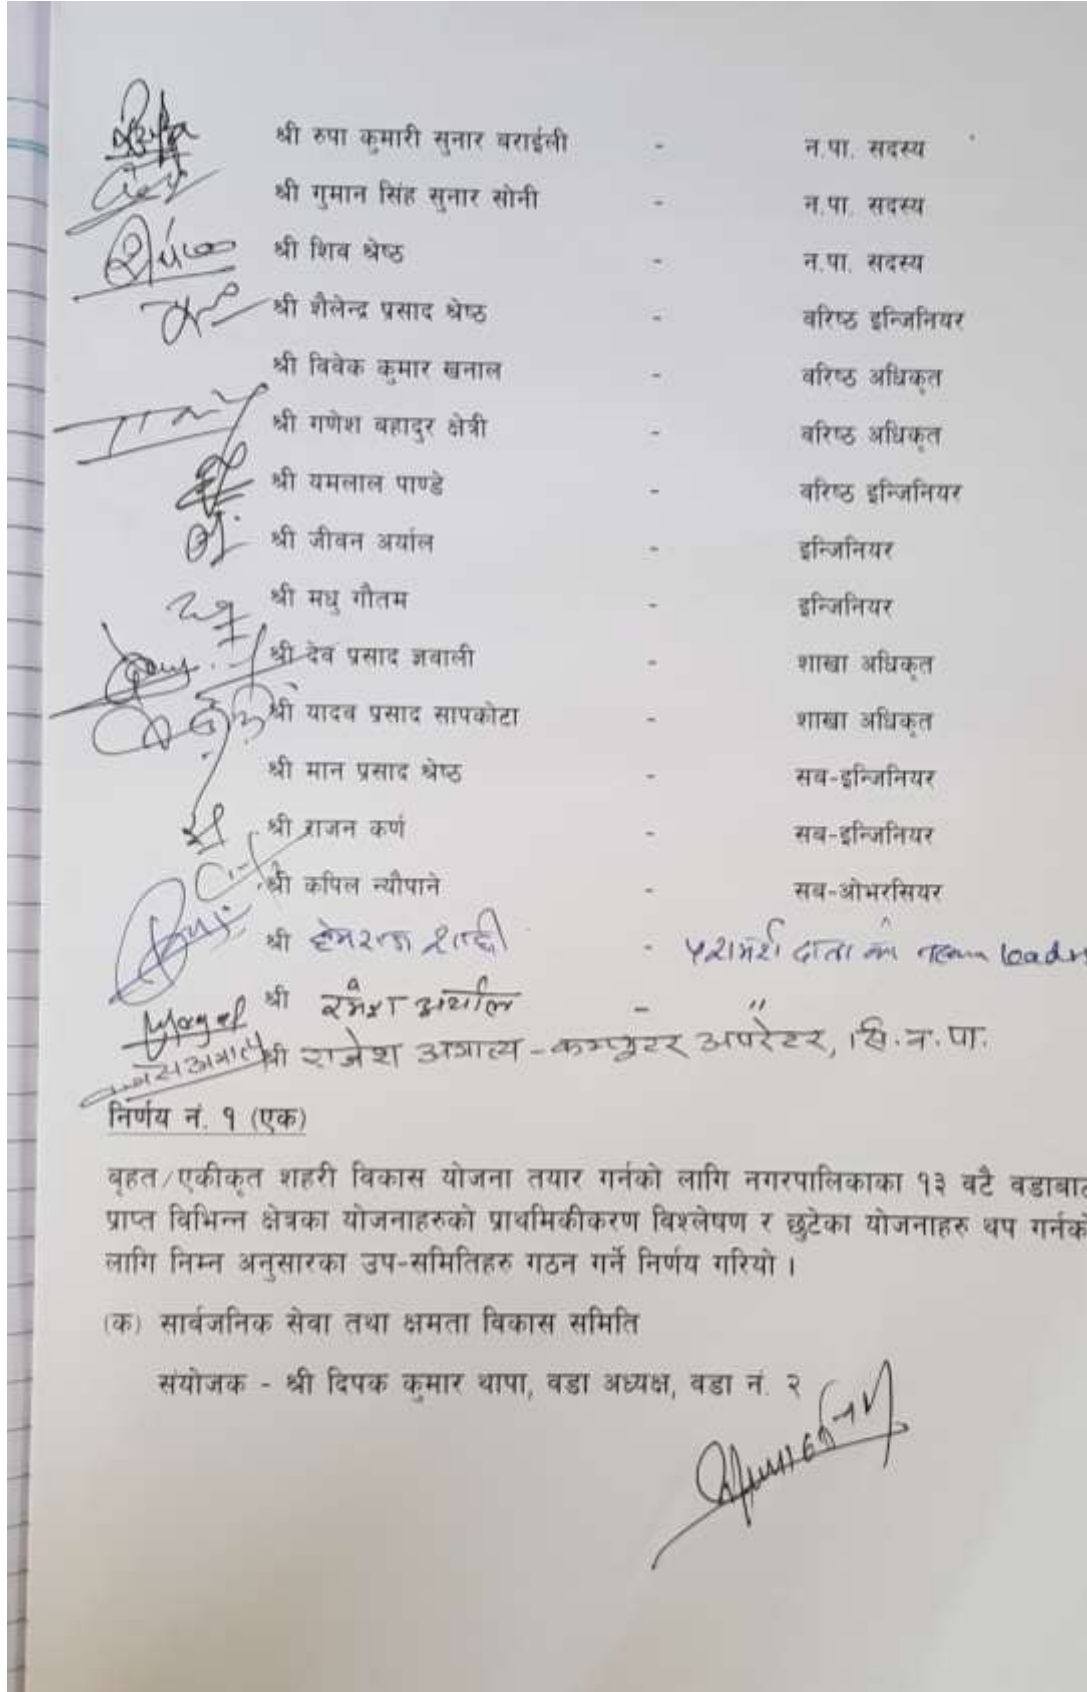 श्री रुपा कुमारी सुनार बराईली - न.पा. सदस्य
श्री गुमान सिंह सुनार सोनी - न.पा. सदस्य
श्री शिव श्रेष्ठ - न.पा. सदस्य
श्री शैलेन्द्र प्रसाद श्रेष्ठ - वरिष्ठ इन्जिनियर
श्री विवेक कुमार खनाल - वरिष्ठ अधिकृत
श्री गणेश बहादुर क्षेत्री - वरिष्ठ अधिकृत
श्री यमलाल पाण्डे - वरिष्ठ इन्जिनियर
श्री जीवन अर्याल - इन्जिनियर
श्री मधु गौतम - इन्जिनियर
श्री देव प्रसाद ज्ञवाली - शाखा अधिकृत
श्री यादव प्रसाद सापकोटा - शाखा अधिकृत
श्री मान प्रसाद श्रेष्ठ - सब-इन्जिनियर
श्री राजन कर्ण - सब-इन्जिनियर
श्री कपिल न्यौपाने - सब-ओभरसियर
श्री हेमराज - परामर्श दाता को Team leader
श्री रमेश अर्याल - "
श्री राजेश अमात्य - कम्प्युटर अपरेटर, सि.न.पा.
निर्णय नं. १ (एक)
बृहत/एकीकृत शहरी विकास योजना तयार गर्नको लागि नगरपालिकाका १३ वटै वडाबाट
प्राप्त विभिन्न क्षेत्रका योजनाहरुको प्राथमिकीकरण विश्लेषण र छुटेका योजनाहरु थप गर्नको
लागि निम्न अनुसारका उप-समितिहरु गठन गर्ने निर्णय गरियो ।
(क) सार्वजनिक सेवा तथा क्षमता विकास समिति
संयोजक - श्री दिपक कुमार थापा, वडा अध्यक्ष, वडा नं. २